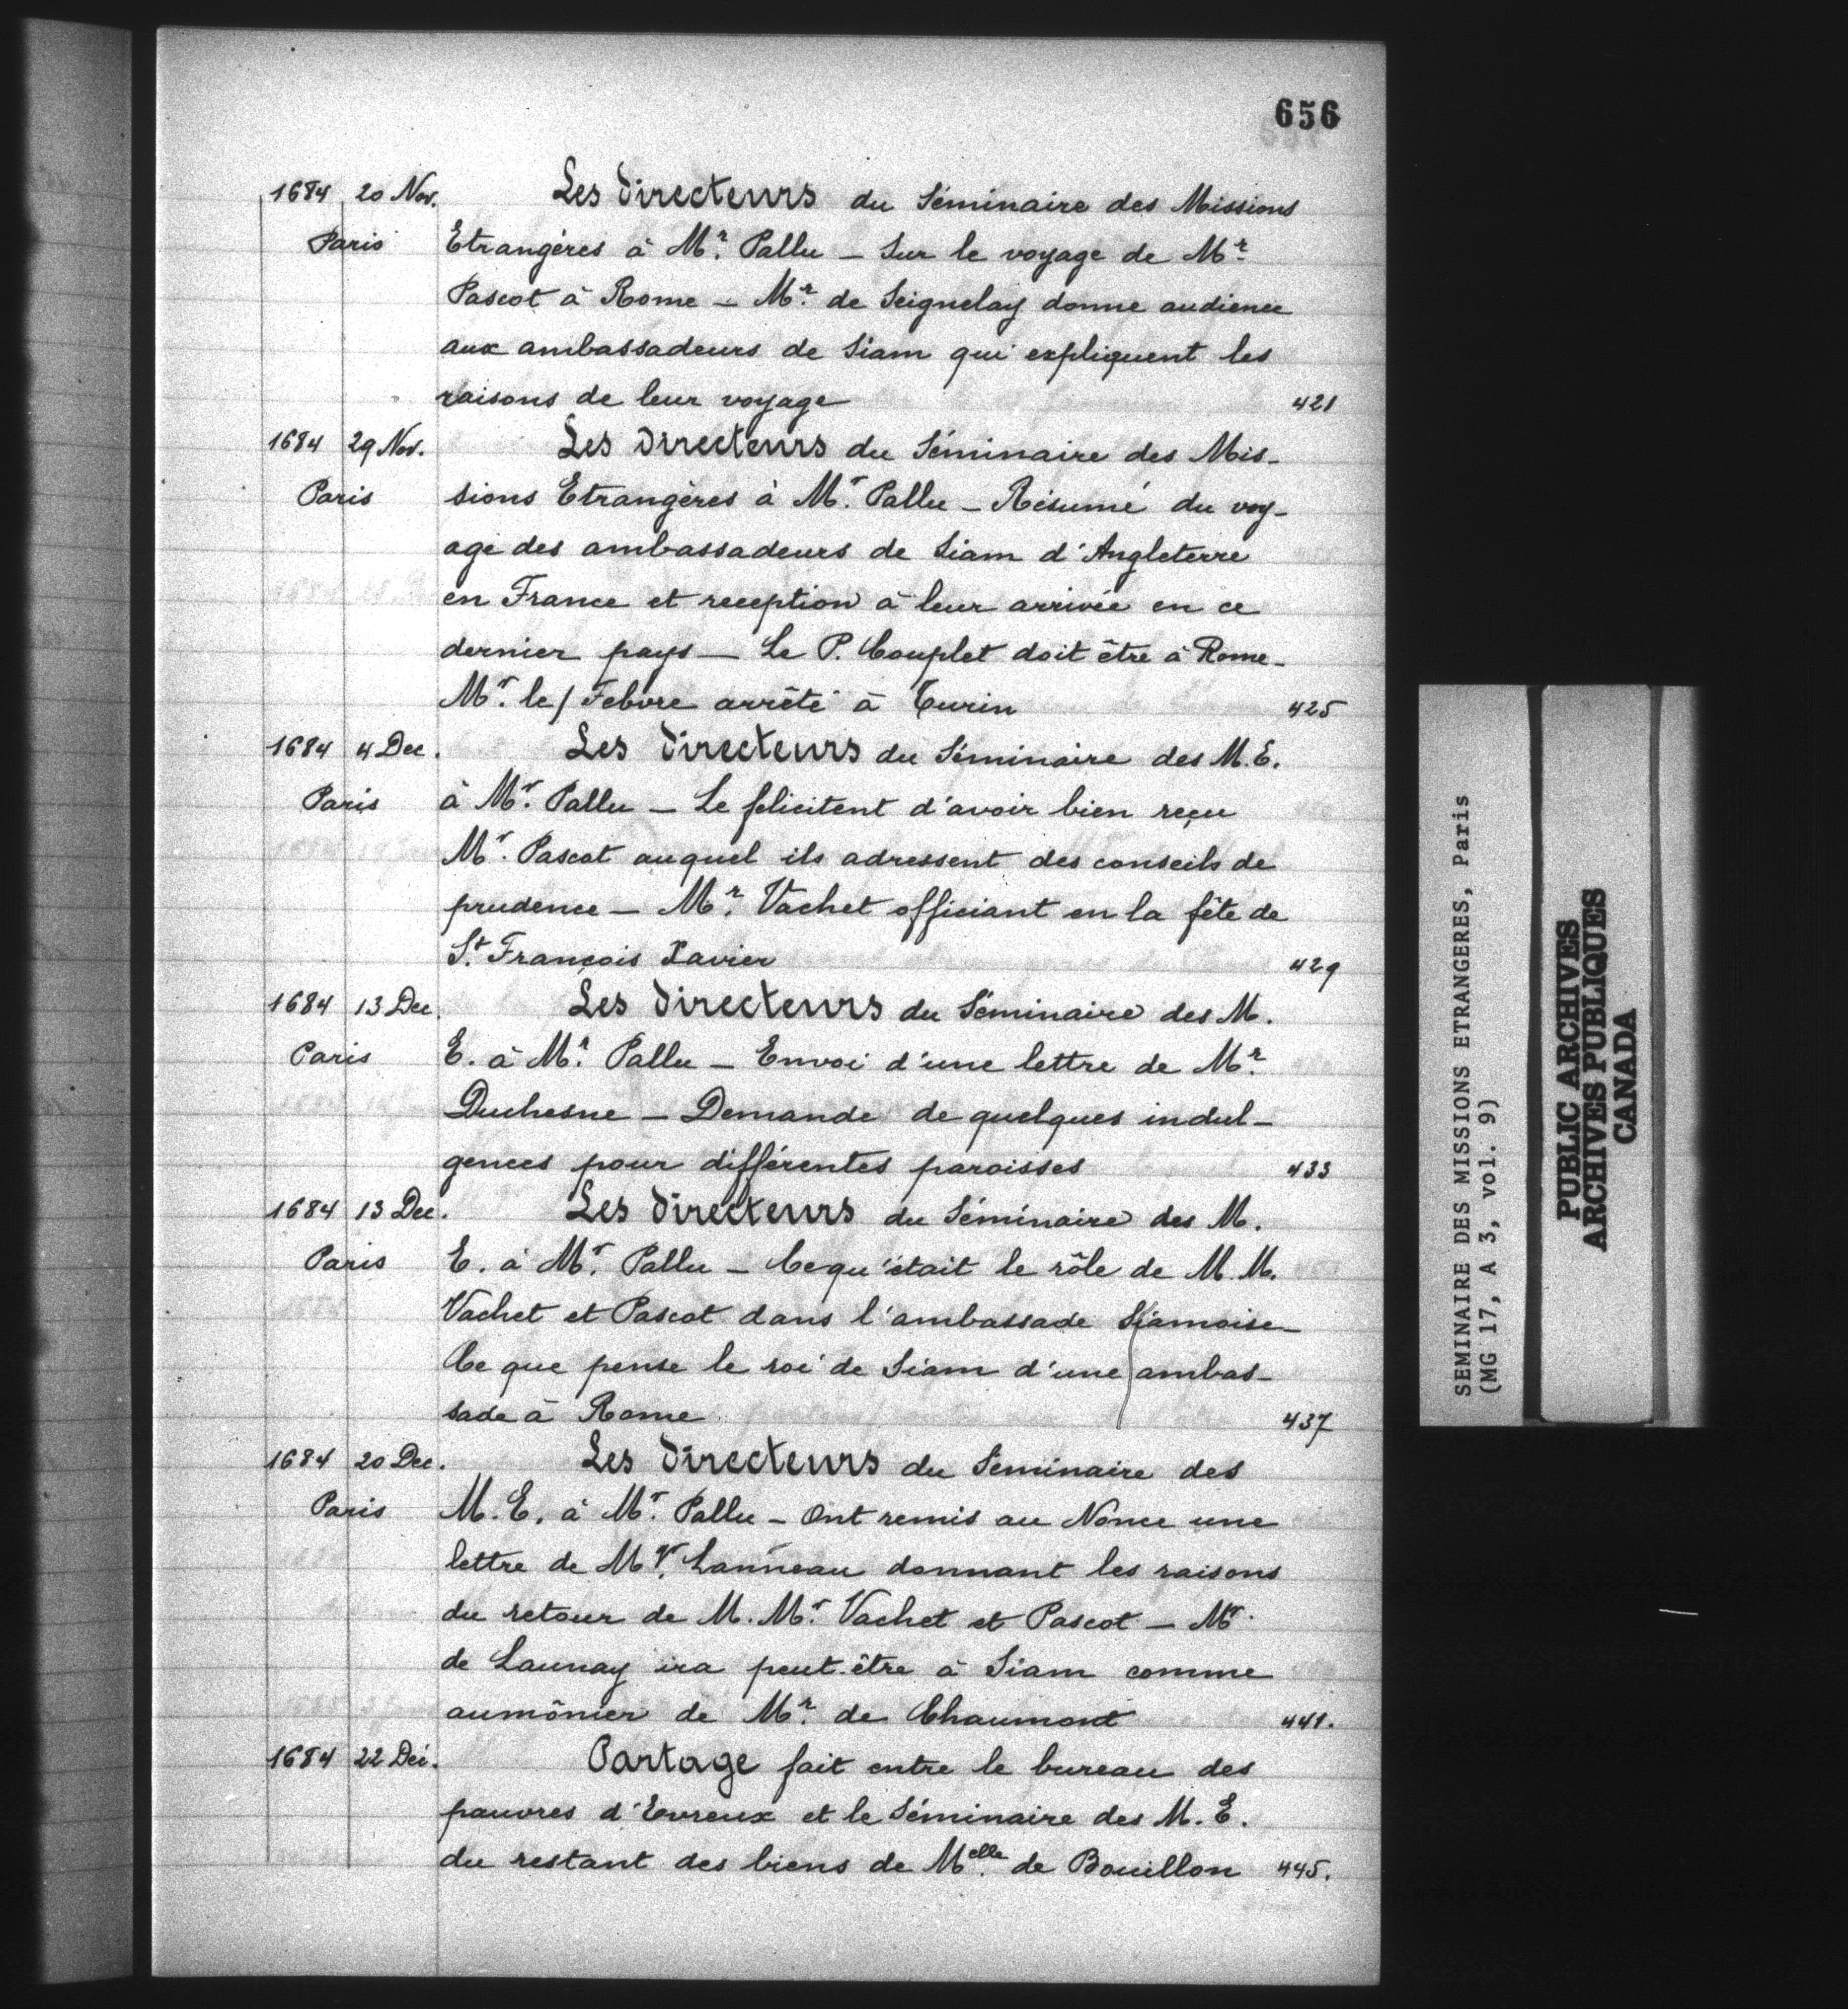 656
1684 20 Nov. Les directeurs du Séminaire des Missions
Paris Etrangères à Mr. Pallu – Sur le voyage de Mr.
Pascot à Rome – Mr. de Seignelay donne audience
aux ambassadeurs de Siam qui expliquent les
raisons de leur voyage 421
1684 29 Nov. Les Directeurs du Séminaire des Mis-
Paris sions Etrangères à Mr. Pallu – Résumé du voy-
age des ambassadeurs de Siam d'Angleterre
en France et reception à leur arrivée en ce
dernier pays – Le P. Couplet doit être à Rome –
Mr. le Febvre arrêté à Turin 425
1684 4 Dec. Les directeurs du Séminaire des M.E.
Paris à Mr. Pallu – Le felicitent d'avoir bien reçu
Mr. Pascot auquel ils adressent des conseils de
prudence – Mr. Vachet officiant en la fête de
St. François Xavier 429
1684 13 Dec. Les directeurs du Séminaire des M.
Paris E. à Mr. Pallu – Envoi d'une lettre de Mr.
Duchesne – Demande de quelques indul-
gences pour différentes paroisses 433
1684 13 Dec. Les directeurs du Séminaire des M.
Paris E. à Mr. Pallu – Ce qu'était le rôle de M.M.
Vachet et Pascot dans l'ambassade Siamoise –
Ce que pense le roi de Siam d'une ambas-
sade à Rome 437
1684 20 Dec. Les directeurs du Séminaire des
Paris M.E. à Mr. Pallu – Ont remis au Nonce une
lettre de Mr. Lanneau donnant les raisons
du retour de M. Mr. Vachet et Pascot – Mr.
de Launay ira peut-être à Siam comme
aumônier de Mr. de Chaumont 441.
1684 22 Déc. Partage fait entre le bureau des
pauvres d'Evreux et le Séminaire des M.E.
du restant des biens de Melle. de Bouillon 445.
SEMINAIRE DES MISSIONS ETRANGERES, Paris
(MG 17, A 3, vol. 9)
PUBLIC ARCHIVES
ARCHIVES PUBLIQUES
CANADA